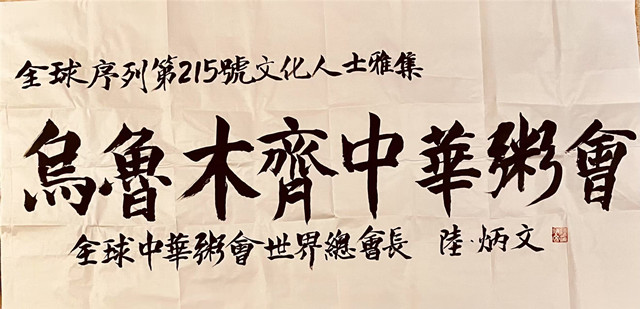 全球序列第215號文化人士雅集
烏魯木齊中華粥會
全球中華粥會世界總會長 陸·炳文